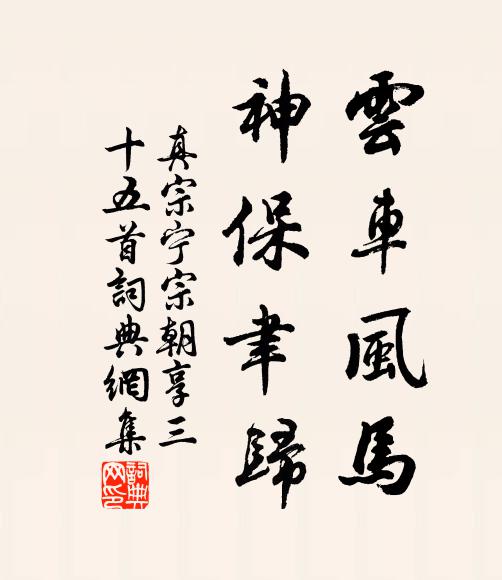 雲車風馬
神保聿歸
真宗宁宗朝享三
十五首詞典網集
詞典
网印